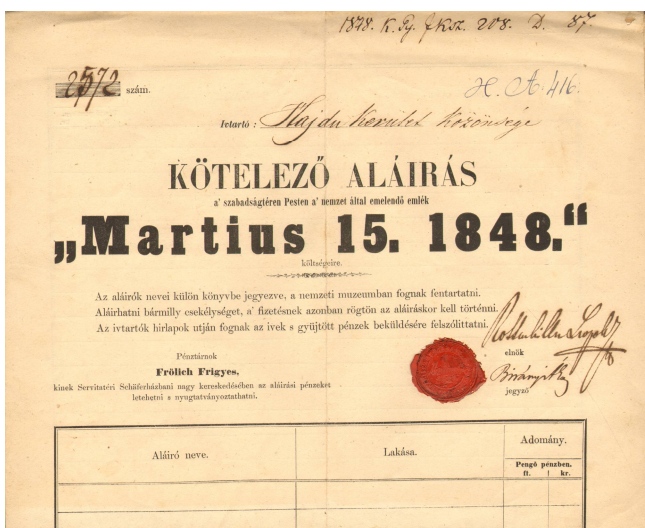 1848. K. Gy. f Ksz. 208. D. 87.
2572 szám.
H. A. 416.
Ivtartó : Hajdu Kerület Közönsége
KÖTELEZŐ ALÁIRÁS
a' szabadságtéren Pesten a' nemzet által emelendő emlék
„Martius 15. 1848.“
költségeire.
Az aláirók nevei külön könyvbe jegyezve, a nemzeti muzeumban fognak fentartatni.
Aláirhatni bármilly csekélységet, a' fizetésnek azonban rögtön az aláiráskor kell történni.
Az ivtartók hirlapok utján fognak az ivek s gyüjtött pénzek beküldésére felszólittatni.
Rottenbiller Leopold
elnök
Pénztárnok
Frölich Frigyes,
kinek Servitatéri Schäferházbani nagy kereskedésében az aláirási pénzeket
letehetni s nyugtatványoztathatni.
jegyző
Aláiró neve.
Lakása.
Adomány.
Pengő pénzben.
ft. kr.